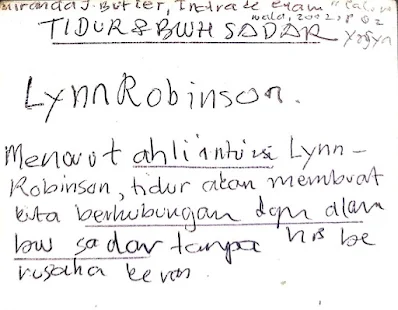 Miranda J. Butler, Indra ke enam "
2002, P 02
TIDUR & BWH SADAR
LynnRobinson.
Menurut ahli intuisi Lynn-
Robinson, tidur akan membuat
kita berhubungan dgn alam
bw sadar tanpa be
rusaha keras